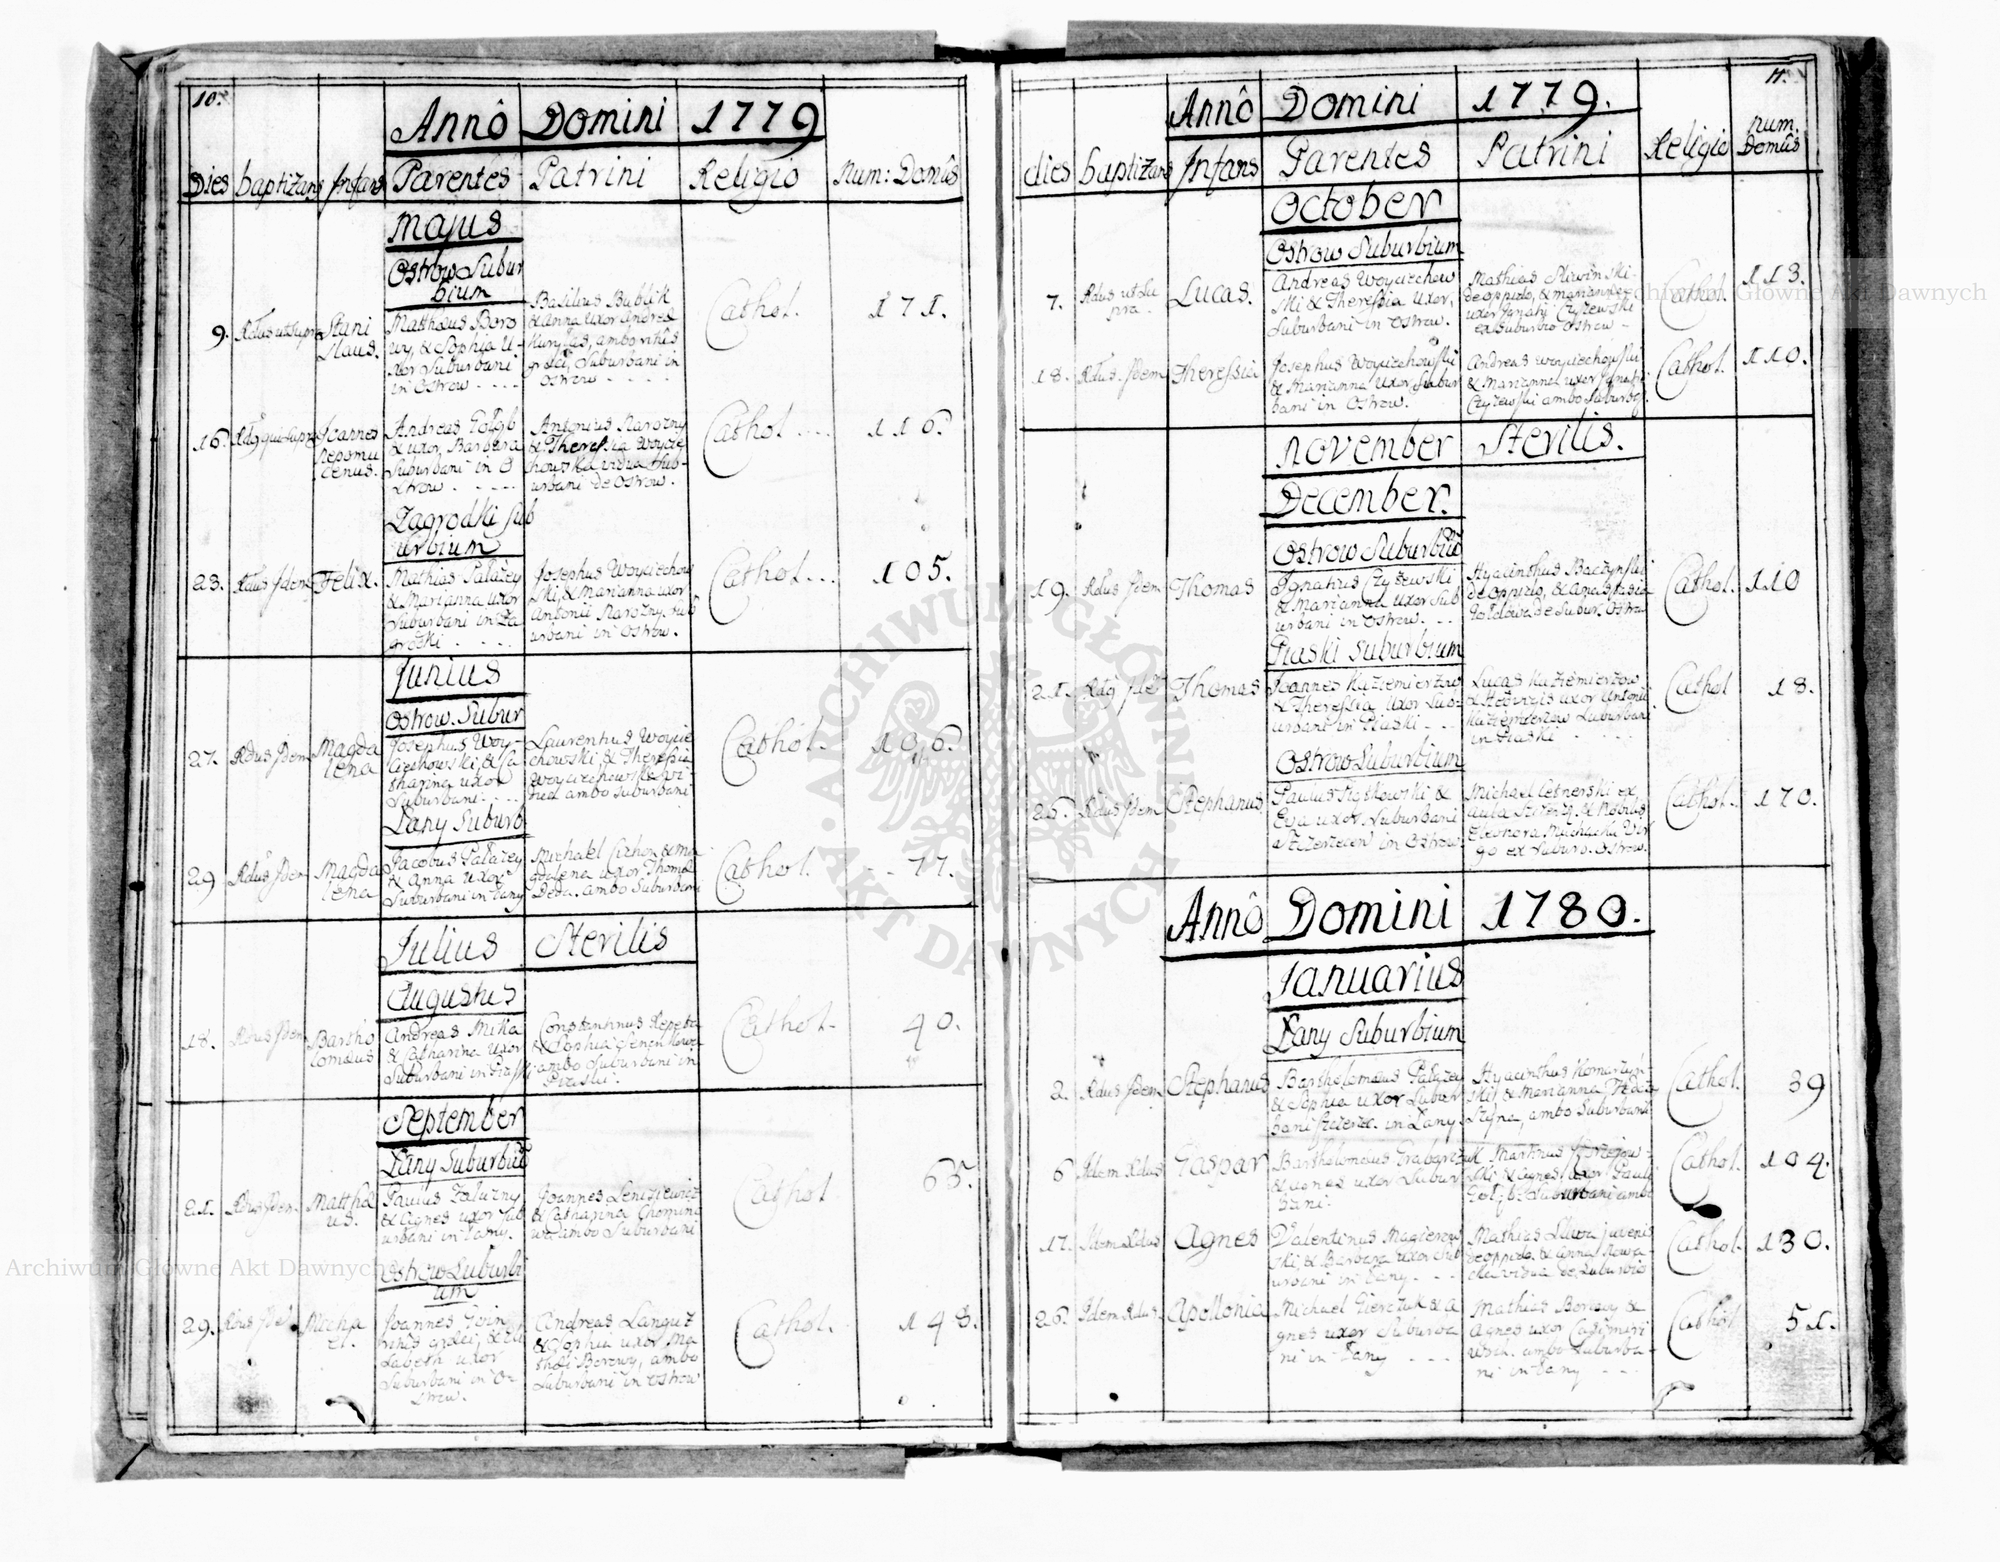 10.
Annô Domini 1779
Dies baptizans Infans Parentes Patrini Religio Num: Domûs
Majus
Ostrow Subur
bium
9. Rdus ut supra Stani
slaus.
Matthæus Boro
wy, & Sophia U-
xor Suburbani
in Ostrow - - - -
Basilius Bublik
& Anna uxor Andreæ
Kurylas, ambo ritus
græci, Suburbani in
Ostrow - - - - -
Cathol. 171.
16. Rdus qui supra Joannes
Nepomu
cenus.
Andreas Gołąb
& uxor, Barbara
Suburbani in O
strow . - - - -
Antonius Narozny
& Theressia Woycie
chowska vidua Sub-
urbani de Ostrow.
Cathol .... 116.
Zagrodki sub
urbium
23. Rdus Idem Felix.
Mathias Pałazey
& Marianna uxor
Suburbani in Za
grodki . - - - -
Josephus Woyciechow
ski, & Marianna uxor
Antonii Narozny. sub
urbani in Ostrow.
Cathol... 105.
Junius
Ostrow. Subur
27. Rdus Idem Magda
lena
Josephus Woy-
ciechowski, & Ca
tharina uxor
Suburbani. - - -
Laurentius Woycie
chowski, & Theressia
Woyciechowska vi-
dua ambo suburbani
Cathol. 106.
Łany Suburb
29 Rdus Idem Magda
lena
Jacobus Pałazey
& Anna uxor
Suburbani in Łany
Michael Cichon & Ma
gdalena uxor Thomæ
Deda. ambo Suburbani
Cathol. - - 77.
Julius Sterilis
Augustus
18. Rdus Idem Bartho
lomæus
Andreas Mika
& Catharina uxor
Suburbani in Piaski
Constantinus Repeta
& Sophia
ambo Suburbani in
Piaski.
Cathol. 40.
September
Łany Suburbiũ
21. Rdus Idem Matthæ
us.
Paulus Załuzny
& Agnes uxor sub
urbani in Łany.
Joannes Leniziewicz
& Catharina
ambo Suburbani
Cathol 65.
Ostrow Suburbi
um
29. Rdus Idem Micha
el.
Joannes
ritus græci, & Eli
sabeth uxor
Suburbani in O-
strow.
Andreas Langusz
& Sophia uxor Ma
thæi Borowy, ambo
Suburbani in Ostrow
Cathol. 148.
11.
Annô Domini 1779.
dies baptizans Infans Parentes Patrini Religio num.
Domûs
October
Ostrow Suburbium
7. Rdus ut su
pra. Lucas.
Andreas Woyciechow
ski & Theressia Uxor,
Suburbani in Ostrow.
Mathias Sliwinski
de oppido, & Marianna
uxor Ignatij Czyżewski
ex suburbio Ostrow -
Cathol. 113.
18. Rdus. Idem Theressia
Josephus Woyciechowski
& Marianna Uxor, Subur
bani in Ostrow.
Andreas Woyciechowski
& Marianna uxor Ignatij
Czyżewski ambo Suburb.
Cathol. 110.
November Sterilis.
December.
Ostrow Suburbiũ
19. Rdus Idem Thomas
Ignatius Czyżewski
& Marianna uxor Sub
urbani in Ostrow. - -
Hyacinthus Baczynski
de Oppido, & Anastasia
de Subur. Ostrow
Cathol. 110
Piaski Suburbium
21. Rdus Idem Thomas
Joannes Kazimierzow
& Theressia Uxor Sub-
urbani in Piaski - - -
Lucas Kazimierzow
& Hedvigis uxor Antonii
Kazimierzow Suburbani
in Piaski - - - -
Cathol 18.
Ostrow Suburbium
26. Rdus Idem Stephanus
Paulus & 
Eva uxor, Suburbani
in Ostrow
Michael ex
Aula & Nobilis
Eleonora Vir
go ex Suburb. Ostrow.
Cathol. 170.
Annô Domini 1780.
Januarius
Łany Suburbium
2. Rdus Idem Stephanus
Bartholomæus Pałazey
& Sophia uxor Subur
bani in Łany
Hyacinthus Komarzyń
ski, & Marianna
ambo Suburbani
Cathol. 39
6 Idem Rdus Gaspar
Bartholomæus Grabarczuk
& Agnes uxor Subur
bani.
Martinus
ski, & Agnes uxor Pauli
Gołąb Suburbani ambo
Cathol. 104.
17. Idem Rdus Agnes
Valentinus Magierow
ski, & Barbara uxor Sub
urbani in Łany. - - -
Mathias Sliwa juvenis
de oppido. & Anna Nowa-
cka vidua de Suburbio
Cathol. 130.
26. Idem Rdus. Apollonia
Michael Pierczuk & A
gnes uxor Suburba
ni in Łany - - -
Mathias Borowy &
Agnes uxor Casimiri
ambo Suburba-
ni in Łany - -
Cathol 51.
Archiwum Główne Akt Dawnych
Archiwum Główne Akt Dawnych
· ARCHIWUM GŁÓWNE · AKT DAWNYCH